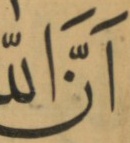 اَنَّ اللّٰ